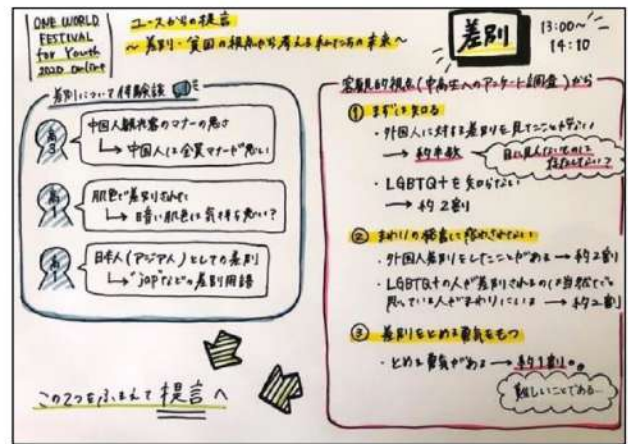 ONE WORLD
FESTIVAL
for Youth
2020 Online
ユースからの提言
～差別・貧困の視点から考える私たちの未来～
差別
13:00～
14:10
差別について体験談
高3
中国人観光客のマナーの悪さ
→ 中国人は全員マナーが悪い
高1
肌色で差別された
→ 暗い肌色は気持ち悪い？
高1
日本人（アジア人）としての差別
→ "jap"などの差別用語
この2つをふまえて提言へ
客観的視点（中高生へのアンケート調査）から
① まずは知る
・外国人に対する差別を見たことがない
→ 約半数
目に見えないものは
存在しない？
・LGBTQ+を知らない
→ 約2割
② まわりの発言に流されない
・外国人差別をしたことがある → 約2割
・LGBTQ+の人が差別されるのは当然だと
思っている人がまわりにいる → 約2割
③ 差別をとめる勇気をもつ
・とめる勇気がある → 約1割
難しいことである…